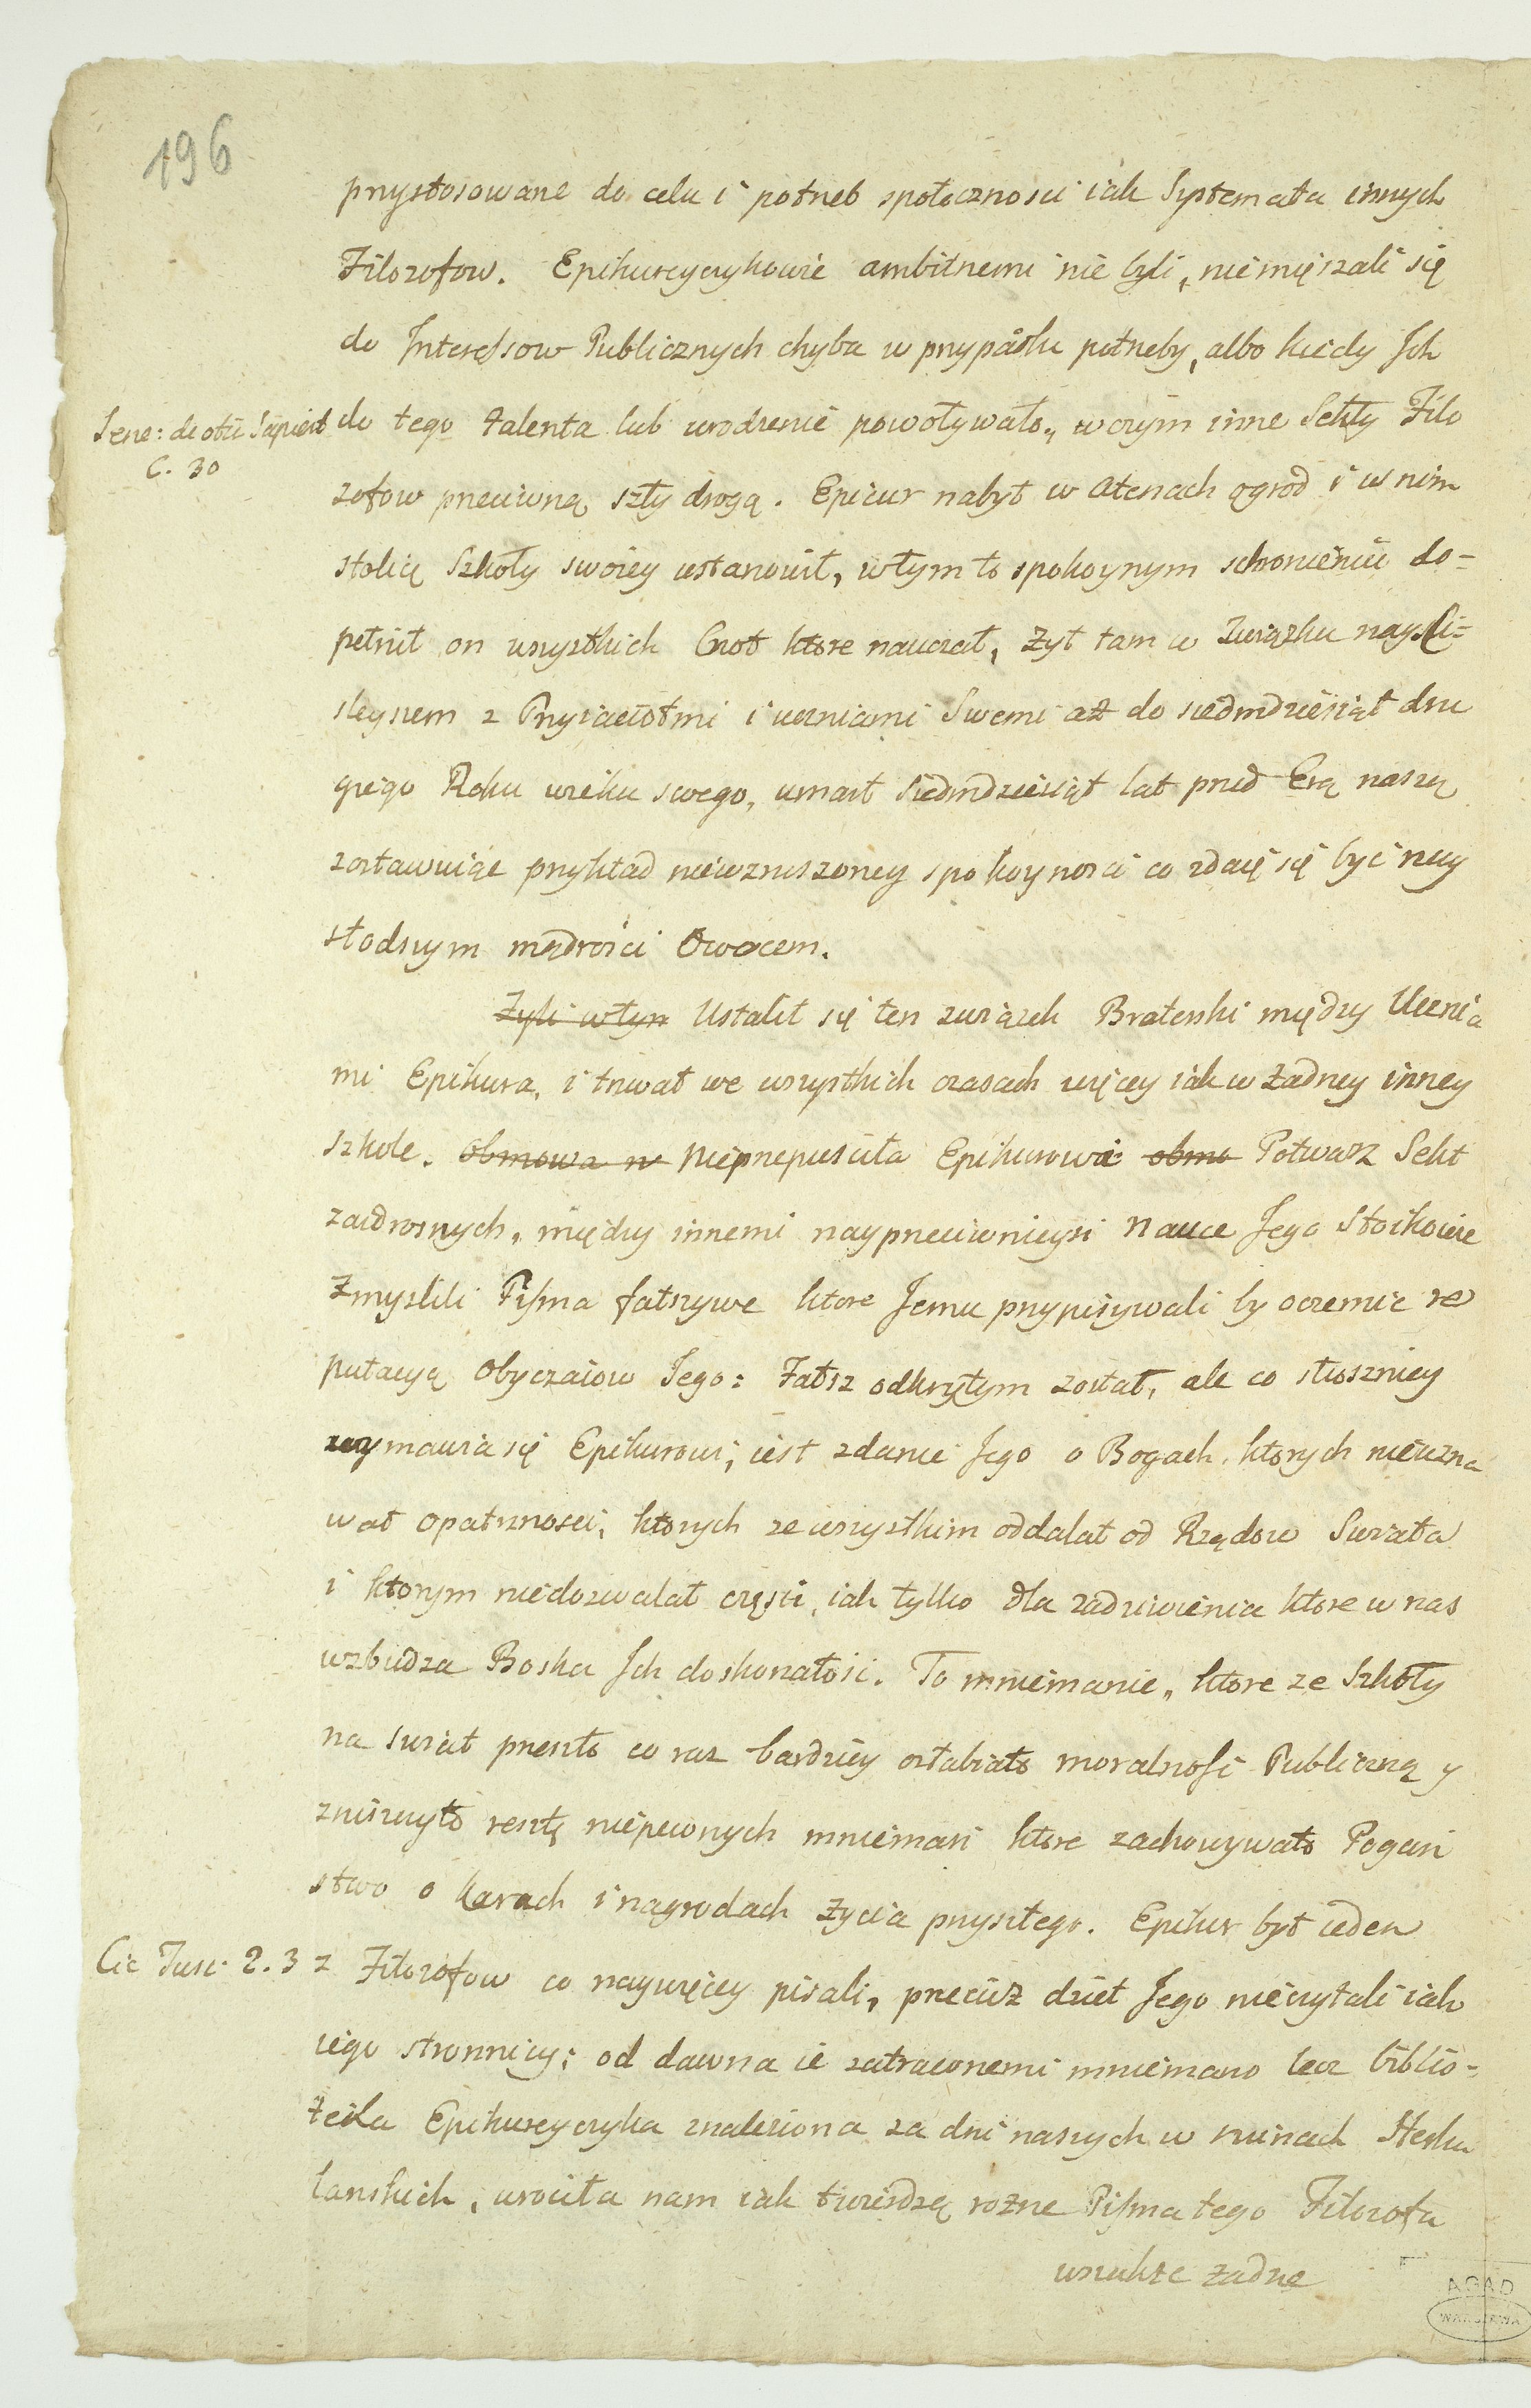 196
przystosowane do celu i potrzeb społecznosci iak Systemata innych
Filozofow. Epikureyczykowie ambitnemi nie byli, niemięszali się
do Interessow Publicznych chyba w przypadku potrzeby, albo kiedy Ich
Sene: de otii Sapient C. 30
do tego talenta lub urodzenie powoływało, w czym inne Sekty Filo
zofow przeciwną szły drogą. Epicur nabył w Atenach ogrod i w nim
stolicę Szkoły swoiey ustanowił, w tym to spokoynym schronieniu do-
pełnił on wszystkich Cnot ktore nauczał, żył tam w Związku nayści-
sleyszem z Przyiaciołmi i uczniami Swemi aż do siedmdziesiąt dru
giego Roku wieku swego, umarł siedmdziesiąt lat przed Erą naszą
zostawuiąc przykład niewzruszoney spokoynosci co zdaię się być nay
słodszym mądrości Owocem.
Żyli w tym Ustalił się ten związek Braterski między Ucznia
mi Epikura, i trwał we wszystkich czasach więcey iak w żadney inney
szkole. Obmowa w Nieprzepusciła Epikurowi obmo Potwarz Sekt
zazdrosnych, między innemi nayprzeciwnieysi Nauce Jego Stoikowie
Zmyslili Pisma fałszywe ktore Jemu przypisywali by oczernic re
putacyą Obyczaiow Jego: Fałsz odkrytym został, ale co słuszniey
wymawia się Epikurowi, iest zdanie Jego o Bogach, ktorych nieuzna
wał opatrznosci, ktorych ze wszystkim oddalał od Rządow Swiata
i ktorym niedozwalał części, iak tylko dla zadziwienia ktore w nas
wzbudza Boska Ich doskonałość. To mniemanie, ktore ze Szkoły
na swiat przeszło co raz bardziey osłabiało moralność Publiczną y
zniszczyło resztę niepewnych mniemań ktore zachowywało Pogań
stwo o karach i nagrodach życia przyszłego. Epikur był ieden
Cic Tusc. 2. 3
z Filozofow co naywięcey pisali, przecież dzieł Jego nieczytali iak
iego stronnicy; od dawna ie zatraconemi mniemano lecz biblio-
teika Epikureyczyka znaleziona za dni naszych w ruinach Herku
lanskich, wrociła nam iak twierdzą rożne Pisma tego Filozofa
wszakże żadne
AGAD
WARSZAWA